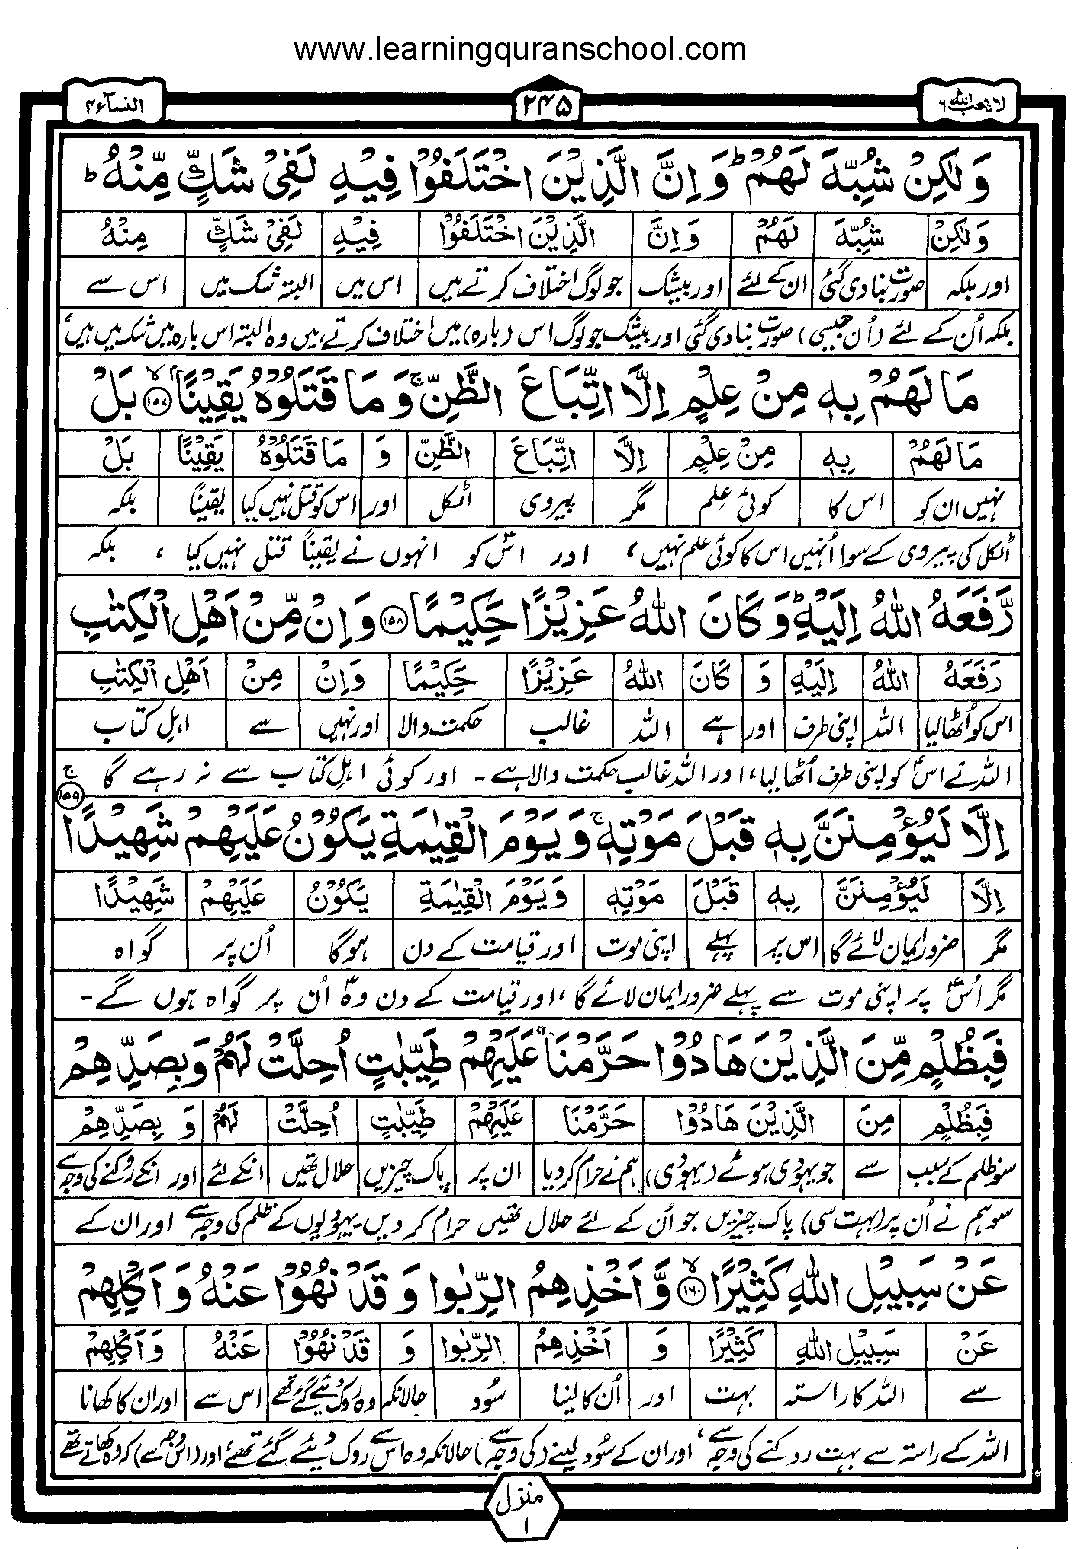 www.learningquranschool.com
لا یحب اللہ ۶ ۲۴۵ النسآء ۴
وَلٰكِنْ شُبِّهَ لَهُمْ ؕ وَاِنَّ الَّذِيْنَ اخْتَلَفُوْا فِيْهِ لَفِيْ شَكٍّ مِّنْهُ ؕ
وَلٰكِنْ شُبِّهَ لَهُمْ وَاِنَّ الَّذِيْنَ اخْتَلَفُوْا فِيْهِ لَفِيْ شَكٍّ مِنْهُ
اور بلکہ صورت بنادی گئی ان کے لئے اور بیشک جو لوگ اختلاف کرتے ہیں اس میں البتہ شک میں اس سے
بلکہ اُن کے لئے (اُن جیسی) صورت بنادی گئی اور بیشک جو لوگ اس (بارہ) میں اختلاف کرتے ہیں وہ البتہ اس بارہ میں شک میں ہیں،
مَا لَهُمْ بِهٖ مِنْ عِلْمٍ اِلَّا اتِّبَاعَ الظَّنِّ ۚ وَمَا قَتَلُوْهُ يَقِيْنًا ۙ‏﴿۱۵۷﴾ بَلْ
مَا لَهُمْ بِهٖ مِنْ عِلْمٍ اِلَّا اتِّبَاعَ الظَّنِّ وَ مَا قَتَلُوْهُ يَقِيْنًا بَلْ
نہیں ان کو اس کا کوئی علم مگر پیروی اٹکل اور اس کو قتل نہیں کیا یقیناً بلکہ
اٹکل کی پیروی کے سوا اُنہیں اس کا کوئی علم نہیں، اور اسؑ کو انہوں نے یقیناً قتل نہیں کیا، بلکہ
رَّفَعَهُ اللّٰهُ اِلَيْهِ ؕ وَكَانَ اللّٰهُ عَزِيْزًا حَكِيْمًا ﴿۱۵۸﴾ وَاِنْ مِّنْ اَهْلِ الْكِتٰبِ
رَفَعَهُ اللّٰهُ اِلَيْهِ وَ كَانَ اللّٰهُ عَزِيْزًا حَكِيْمًا وَاِنْ مِنْ اَهْلِ الْكِتٰبِ
اس کو اُٹھا لیا اللہ اپنی طرف اور ہے اللہ غالب حکمت والا اور نہیں سے اہلِ کتاب
اللہ نے اسؑ کو اپنی طرف اُٹھا لیا، اور اللہ غالب حکمت والا ہے۔ اور کوئی اہلِ کتاب سے نہ رہے گا
اِلَّا لَيُؤْمِنَنَّ بِهٖ قَبْلَ مَوْتِهٖ ۚ وَيَوْمَ الْقِيٰمَةِ يَكُوْنُ عَلَيْهِمْ شَهِيْدًا ۚ‏﴿۱۵۹﴾
اِلَّا لَيُؤْمِنَنَّ بِهٖ قَبْلَ مَوْتِهٖ وَيَوْمَ الْقِيٰمَةِ يَكُوْنُ عَلَيْهِمْ شَهِيْدًا
مگر ضرور ایمان لائے گا اس پر پہلے اپنی موت اور قیامت کے دن ہوگا اُن پر گواہ
مگر اسؑ پر اپنی موت سے پہلے ضرور ایمان لائے گا، اور قیامت کے دن وہؑ اُن پر گواہ ہوں گے۔
فَبِظُلْمٍ مِّنَ الَّذِيْنَ هَادُوْا حَرَّمْنَا عَلَيْهِمْ طَيِّبٰتٍ اُحِلَّتْ لَهُمْ وَبِصَدِّهِمْ
فَبِظُلْمٍ مِنَ الَّذِيْنَ هَادُوْا حَرَّمْنَا عَلَيْهِمْ طَيِّبٰتٍ اُحِلَّتْ لَهُمْ وَ بِصَدِّهِمْ
سو ظلم کے سبب سے جو یہودی ہوئے (یہودی) ہم نے حرام کر دیا ان پر پاک چیزیں حلال تھیں انکے لئے اور انکے روکنے کی وجہ سے
سو ہم نے اُن پر (بہت سی) پاک چیزیں جو اُن کے لئے حلال تھیں حرام کر دیں یہودیوں کے ظلم کی وجہ سے اور ان کے
عَنْ سَبِيْلِ اللّٰهِ كَثِيْرًا ۙ‏﴿۱۶۰﴾ وَّاَخْذِهِمُ الرِّبٰوا وَقَدْ نُهُوْا عَنْهُ وَاَكْلِهِمْ
عَنْ سَبِيْلِ اللّٰهِ كَثِيْرًا وَ اَخْذِهِمُ الرِّبٰوا وَ قَدْ نُهُوْا عَنْهُ وَاَكْلِهِمْ
سے اللہ کا راستہ بہت اور اُن کا لینا سُود حالانکہ وہ روک دیئے گئے تھے اس سے اور ان کا کھانا
اللہ کے راستہ سے بہت روکنے کی وجہ سے، اور ان کے سُود لینے (کی وجہ سے) حالانکہ وہ اس سے روک دیئے گئے تھے، اور (اس وجہ سے) کہ وہ کھاتے تھے
منزل ۱